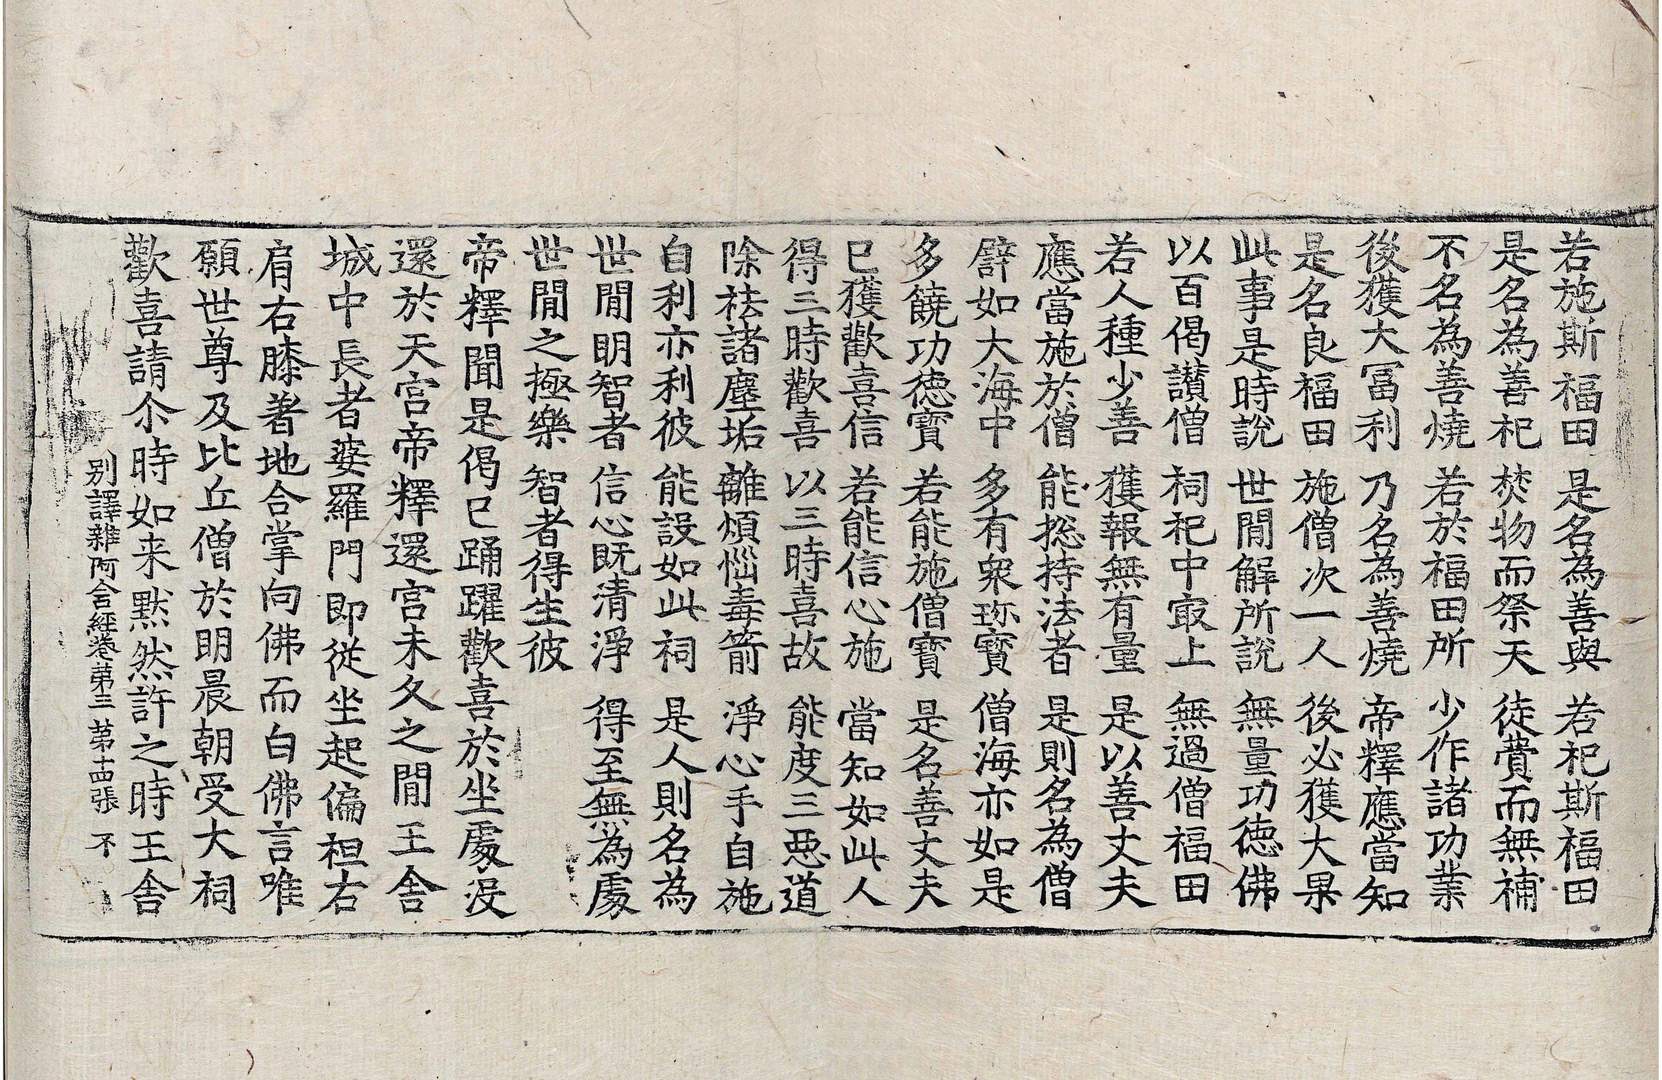 若施斯福田 是名為善與 若祀斯福田
是名為善祀 焚物而祭天 徒費而無補
不名為善燒 若於福田所 少作諸功業
後獲大冨利 乃名為善燒 帝釋應當知
是名良福田 施僧次一人 後必獲大果
此事是時說 世間解所說 無量功德佛
以百偈讃僧 祠祀中㝡上 無過僧福田
若人種少善 獲報無有量 是以善丈夫
應當施於僧 能揔持法者 是則名為僧
譬如大海中 多有衆珎寶 僧海亦如是
多饒功德寶 若能施僧寶 是名善丈夫
已獲歡喜信 若能信心施 當知如此人
得三時歡喜 以三時喜故 能度三惡道
除祛諸塵垢 離煩惱毒箭 淨心手自施
自利亦利彼 能設如此祠 是人則名為
世間明智者 信心既清淨 得至無為處
世間之極樂 智者得生彼
帝釋聞是偈已踊躍歡喜於坐處没
還於天宮帝釋還宮未久之間王舍
城中長者婆羅門即從坐起偏袒右
肩右膝著地合掌向佛而白佛言唯
願世尊及比丘僧於明晨朝受大祠
歡喜請尒時如来默然許之時王舍
別譯雜阿含經卷第三 第十四張 不